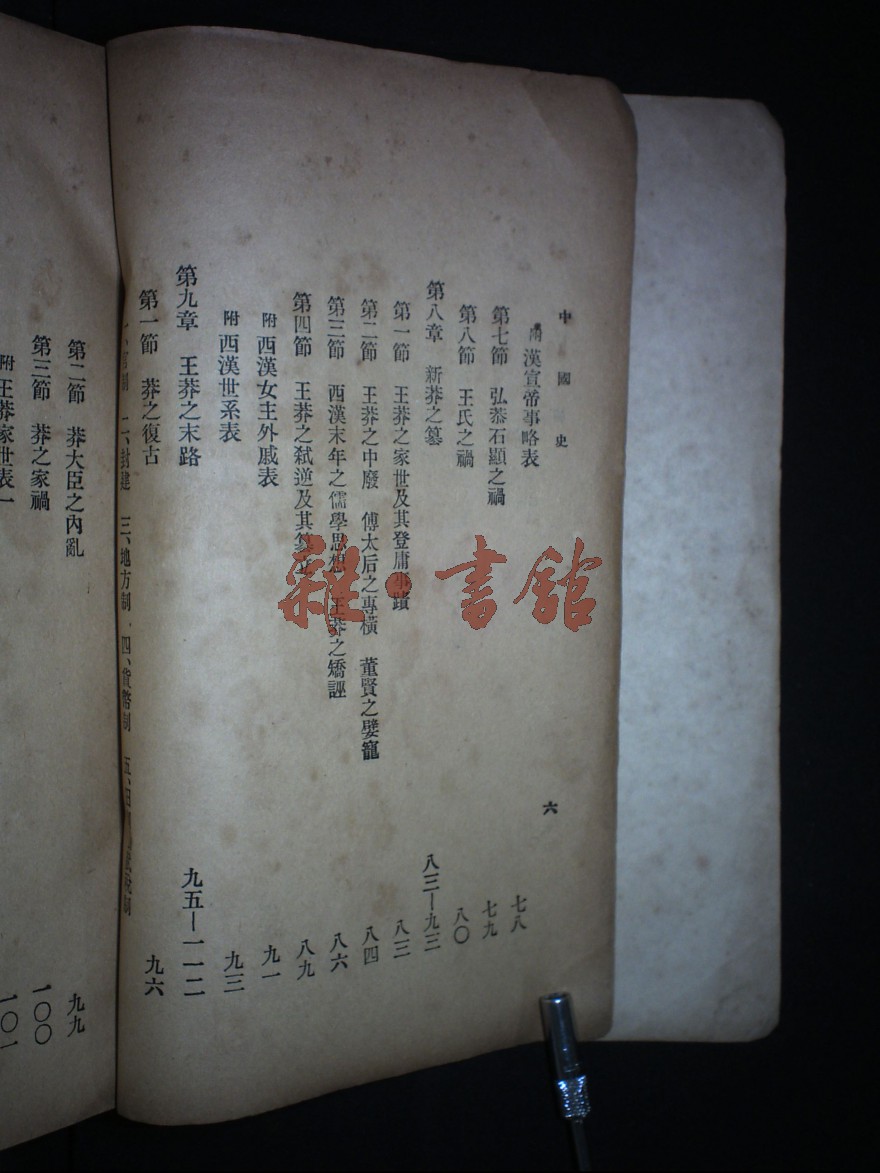 中國史
六
附 漢宣帝事略表 七八
第七節 弘恭石顯之禍 七九
第八節 王氏之禍 八〇
第八章 新莽之篡 八三—九三
第一節 王莽之家世及其登庸事蹟 八三
第二節 王莽之中廢 傅太后之專橫 董賢之嬖寵 八四
第三節 西漢末年之儒學思想 王莽之矯誣 八六
第四節 王莽之弒逆及其篡立 八九
附 西漢女主外戚表 九一
附 西漢世系表 九三
第九章 王莽之末路 九五—一一二
第一節 莽之復古 九六
二、封建 三、地方制 四、貨幣制 五、
第二節 莽大臣之內亂 九九
第三節 莽之家禍 一〇〇
附 王莽家世表一 一〇一
雜·書館